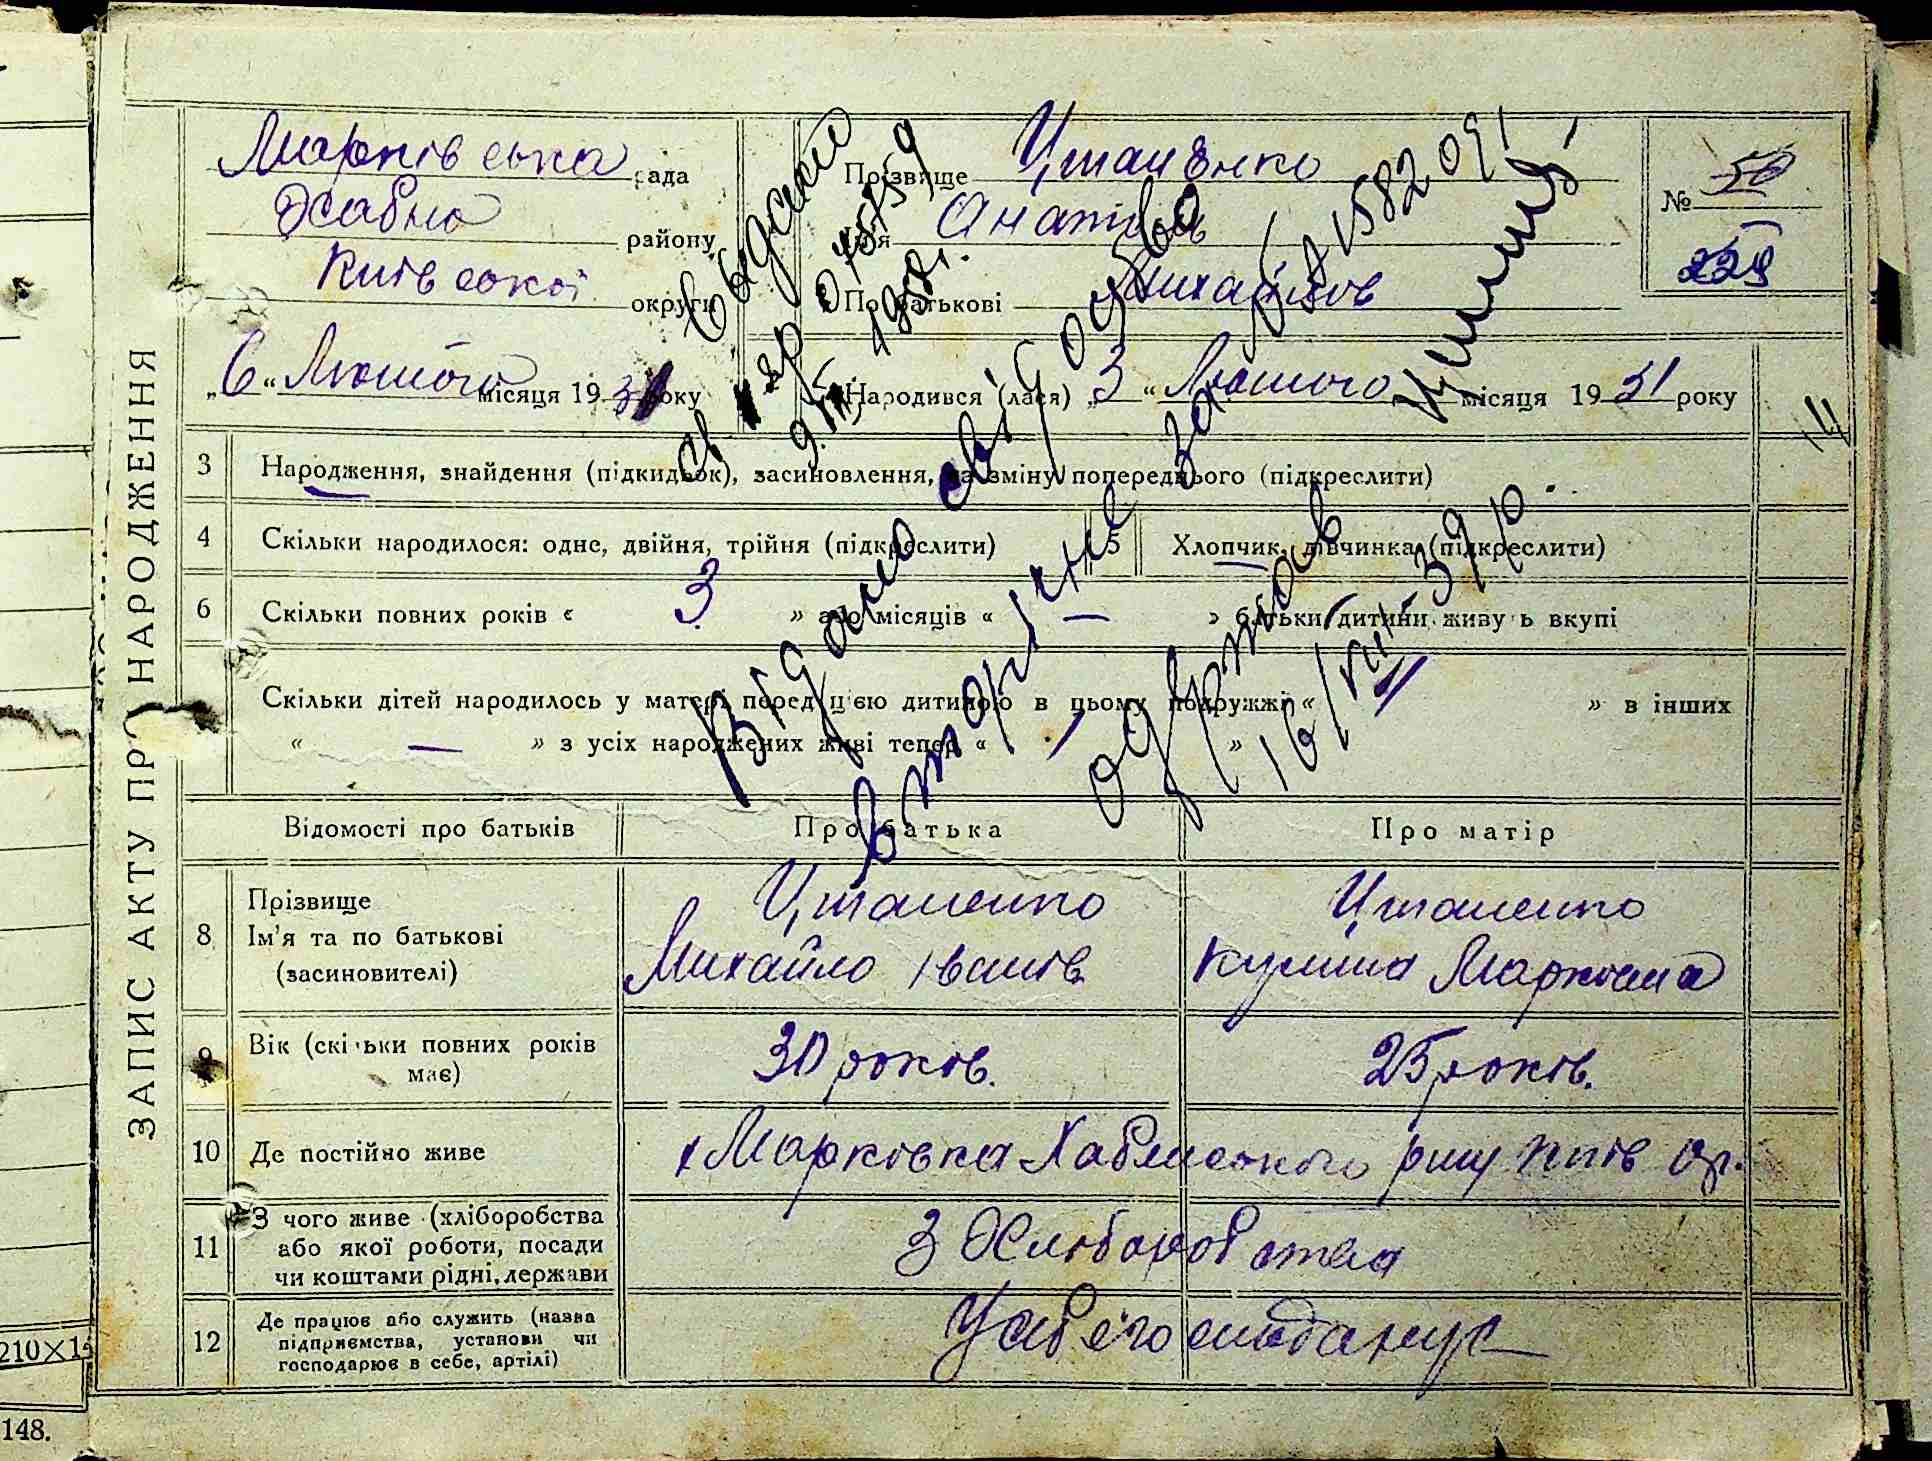 ЗАПИС АКТУ ПРО НАРОДЖЕННЯ
Марківська рада
Хабно району
Київської округи
Прізвище Цтаненко
Ім'я Анатоль
По батькові Михайлов
№ 50
229
„6“ Лютого місяця 1931 року
Народився (лася) „3“ Лютого місяця 1931 року
14
3 Народження, знайдення (підкидьок), засиновлення, на зміну попереднього (підкреслити)
4 Скільки народилося: одне, двійня, трійня (підкреслити)
5 Хлопчик, дівчинка (підкреслити)
6 Скільки повних років « 3 » або місяців « — » батьки дитини живуть вкупі
Скільки дітей народилось у матері перед цією дитиною в цьому подружжі « 1 » в інших
« — » з усіх народжених живі тепер « 1 »
Відомості про батьків
Про батька
Про матір
8 Прізвище
Ім'я та по батькові
(засиновителі)
Цтаненко
Михайло Іванів
Цтаненко
Кулина Марківна
9 Вік (скільки повних років має)
30 років.
25 років.
10 Де постійно живе
Марківка Хабенського р-ну Київ окр.
11 З чого живе (хліборобства
або якої роботи, посади
чи коштами рідні, держави
З Хліборобства
12 Де працює або служить (назва
підприємства, установи чи
господарює в себе, артілі)
У себе господарує
Видано свідоцтво
вторічне за № 158209
одержав
16/VII-39 р.
Св выдано
9.VI 1958 г.
210×14
148.